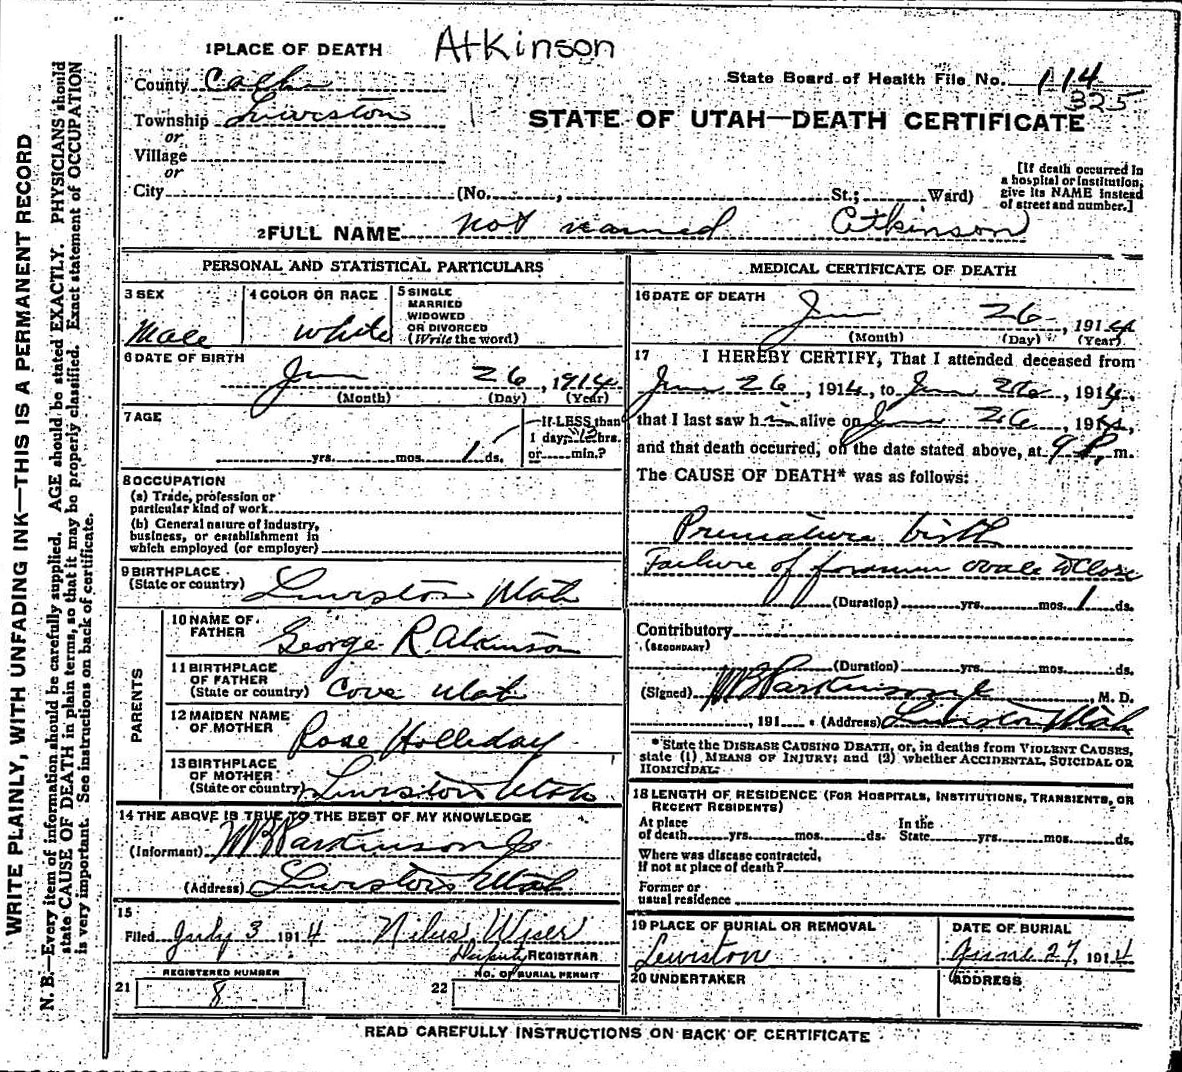 Atkinson
1 PLACE OF DEATH
County Cache
State Board of Health File No. 114
325
Township Lewiston
STATE OF UTAH—DEATH CERTIFICATE
or
Village
or
City (No. , St.; Ward)
[If death occurred in
a hospital or institution,
give its NAME instead
of street and number.]
2 FULL NAME not named Atkinson
PERSONAL AND STATISTICAL PARTICULARS
3 SEX
Male
4 COLOR OR RACE
White
5 SINGLE
MARRIED
WIDOWED
OR DIVORCED
(Write the word)
6 DATE OF BIRTH
Jun 26, 1914
(Month) (Day) (Year)
7 AGE
yrs. mos. 1 ds.
If LESS than
1 day, hrs.
or min.?
8 OCCUPATION
(a) Trade, profession or
particular kind of work
(b) General nature of industry,
business, or establishment in
which employed (or employer)
9 BIRTHPLACE
(State or country) Lewiston Utah
PARENTS
10 NAME OF
FATHER George R Atkinson
11 BIRTHPLACE
OF FATHER
(State or country) Cove Utah
12 MAIDEN NAME
OF MOTHER Rose Holliday
13 BIRTHPLACE
OF MOTHER
(State or country) Lewiston Utah
14 THE ABOVE IS TRUE TO THE BEST OF MY KNOWLEDGE
(Informant) W B Parkinson Jr
(Address) Lewiston Utah
15
Filed July 3 1914 Nilus Wiser
Deputy REGISTRAR
REGISTERED NUMBER
21 8
NO. OF BURIAL PERMIT
22
MEDICAL CERTIFICATE OF DEATH
16 DATE OF DEATH
Jun 26, 1914
(Month) (Day) (Year)
17 I HEREBY CERTIFY, That I attended deceased from
June 26, 1914, to June 26, 1914,
that I last saw him alive on June 26, 1914,
and that death occurred, on the date stated above, at 9 P. m.
The CAUSE OF DEATH* was as follows:
Premature birth
Failure of foramen ovale to Close
(Duration) yrs. mos. 1 ds.
Contributory
(SECONDARY)
(Duration) yrs. mos. ds.
(Signed) W B Parkinson Jr M. D.
, 191 . (Address) Lewiston Utah
*State the DISEASE CAUSING DEATH, or, in deaths from VIOLENT CAUSES,
state (1) MEANS OF INJURY; and (2) whether ACCIDENTAL, SUICIDAL OR
HOMICIDAL.
18 LENGTH OF RESIDENCE (FOR HOSPITALS, INSTITUTIONS, TRANSIENTS, OR
RECENT RESIDENTS)
At place
of death yrs. mos. ds.
In the
State yrs. mos. ds.
Where was disease contracted,
if not at place of death?
Former or
usual residence
19 PLACE OF BURIAL OR REMOVAL
Lewiston
DATE OF BURIAL
June 27, 1914
20 UNDERTAKER
ADDRESS
READ CAREFULLY INSTRUCTIONS ON BACK OF CERTIFICATE
WRITE PLAINLY, WITH UNFADING INK—THIS IS A PERMANENT RECORD
N. B.—Every item of information should be carefully supplied. AGE should be stated EXACTLY. PHYSICIANS should
state CAUSE OF DEATH in plain terms, so that it may be properly classified. Exact statement of OCCUPATION
is very important. See instructions on back of certificate.